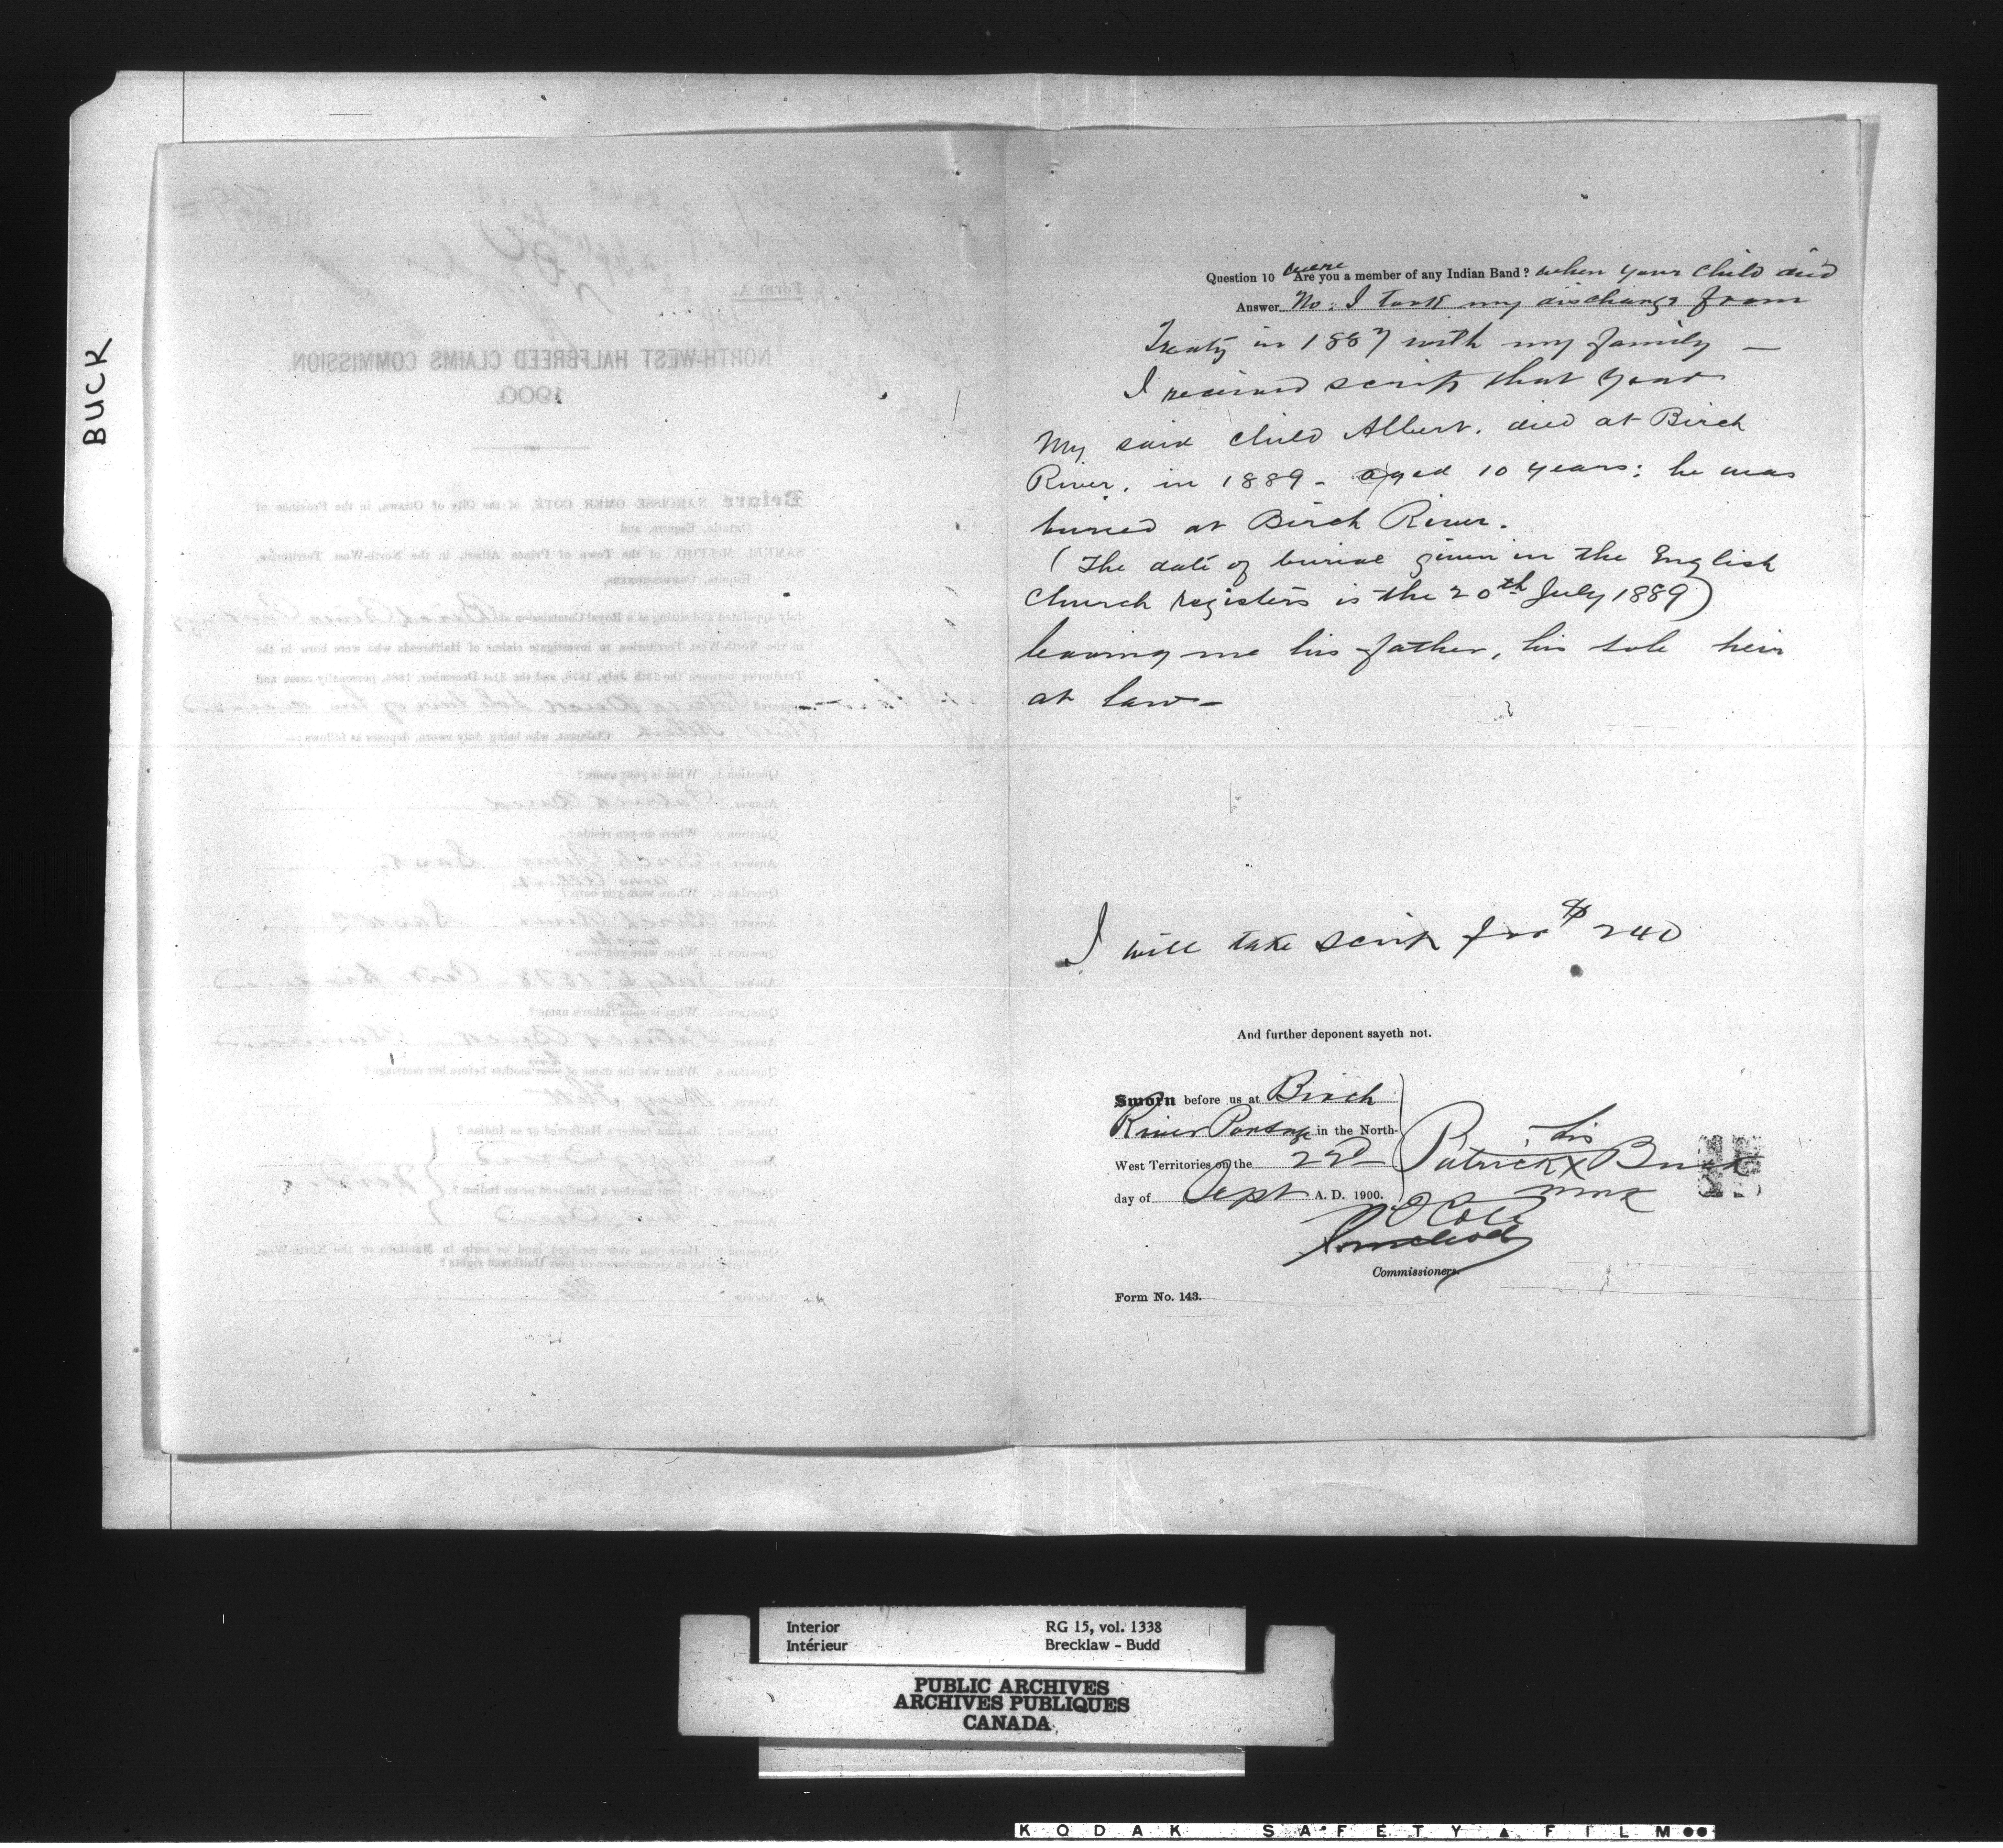 BUCK
Form A.
NORTH-WEST HALFBREED CLAIMS COMMISSION.
1900.
Before NARCISSE OMER COTÉ, of the City of Ottawa, in the Province of
Ontario, Esquire, and
SAMUEL McLEOD, of the Town of Prince Albert, in the North-West Territories,
Esquire, COMMISSIONERS,
duly appointed and sitting as a Royal Commission at Birch River Portage
in the North-West Territories to investigate claims of Halfbreeds who were born in the
Territories between the 15th July, 1870, and the 31st December, 1885, personally came and
appeared Patrick Buck sole heir of his deceased
child, Albert Claimant, who being duly sworn, deposes as follows:—
Question 1. What is your name?
Answer Patrick Buck
Question 2. Where do you reside?
Answer Birch River Sask.
was Albert
Question 3. Where were you born?
Answer Birch River
Question 4. When were you born?
Answer July 1878
his
Question 5. What is your father's name?
Answer Patrick Buck Claimant
his
Question 6. What was the name of your mother before her marriage?
Answer Mary
Question 7. Is your father a Halfbreed or an Indian?
Answer
Question 8. Is your mother a Halfbreed or an Indian?
Answer
Question 9. Have you ever received land or scrip in Manitoba or the North-West
Territories in commutation of your Halfbreed rights?
Answer No
were
Question 10 Are you a member of any Indian Band? when your child died
Answer No. I took my discharge from
Treaty in 1887 with my family —
I received scrip that year
My said child Albert. died at Birch
River. in 1889 - aged 10 years: he was
buried at Birch River.
(The date of burial given in the English
Church registers is the 20th July 1889)
leaving me his father, his sole heir
at law —
I will take scrip for $240
And further deponent sayeth not.
Sworn before us at Birch
River Portage in the North-
West Territories on the 22d
day of Sept A. D. 1900.
his
Patrick X Buck
mark
N O Coté
S McLeod
Commissioners.
Form No. 143.
Interior RG 15, vol. 1338
Intérieur Brecklaw - Budd
PUBLIC ARCHIVES
ARCHIVES PUBLIQUES
CANADA
KODAK SAFETY FILM